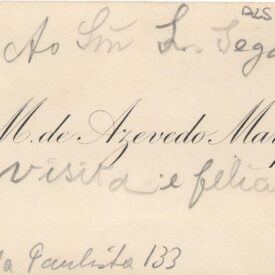 DLS
Ao Snr. Dr. Lega
M. de Azevedo Mar
visita e felic
da Paulista 133